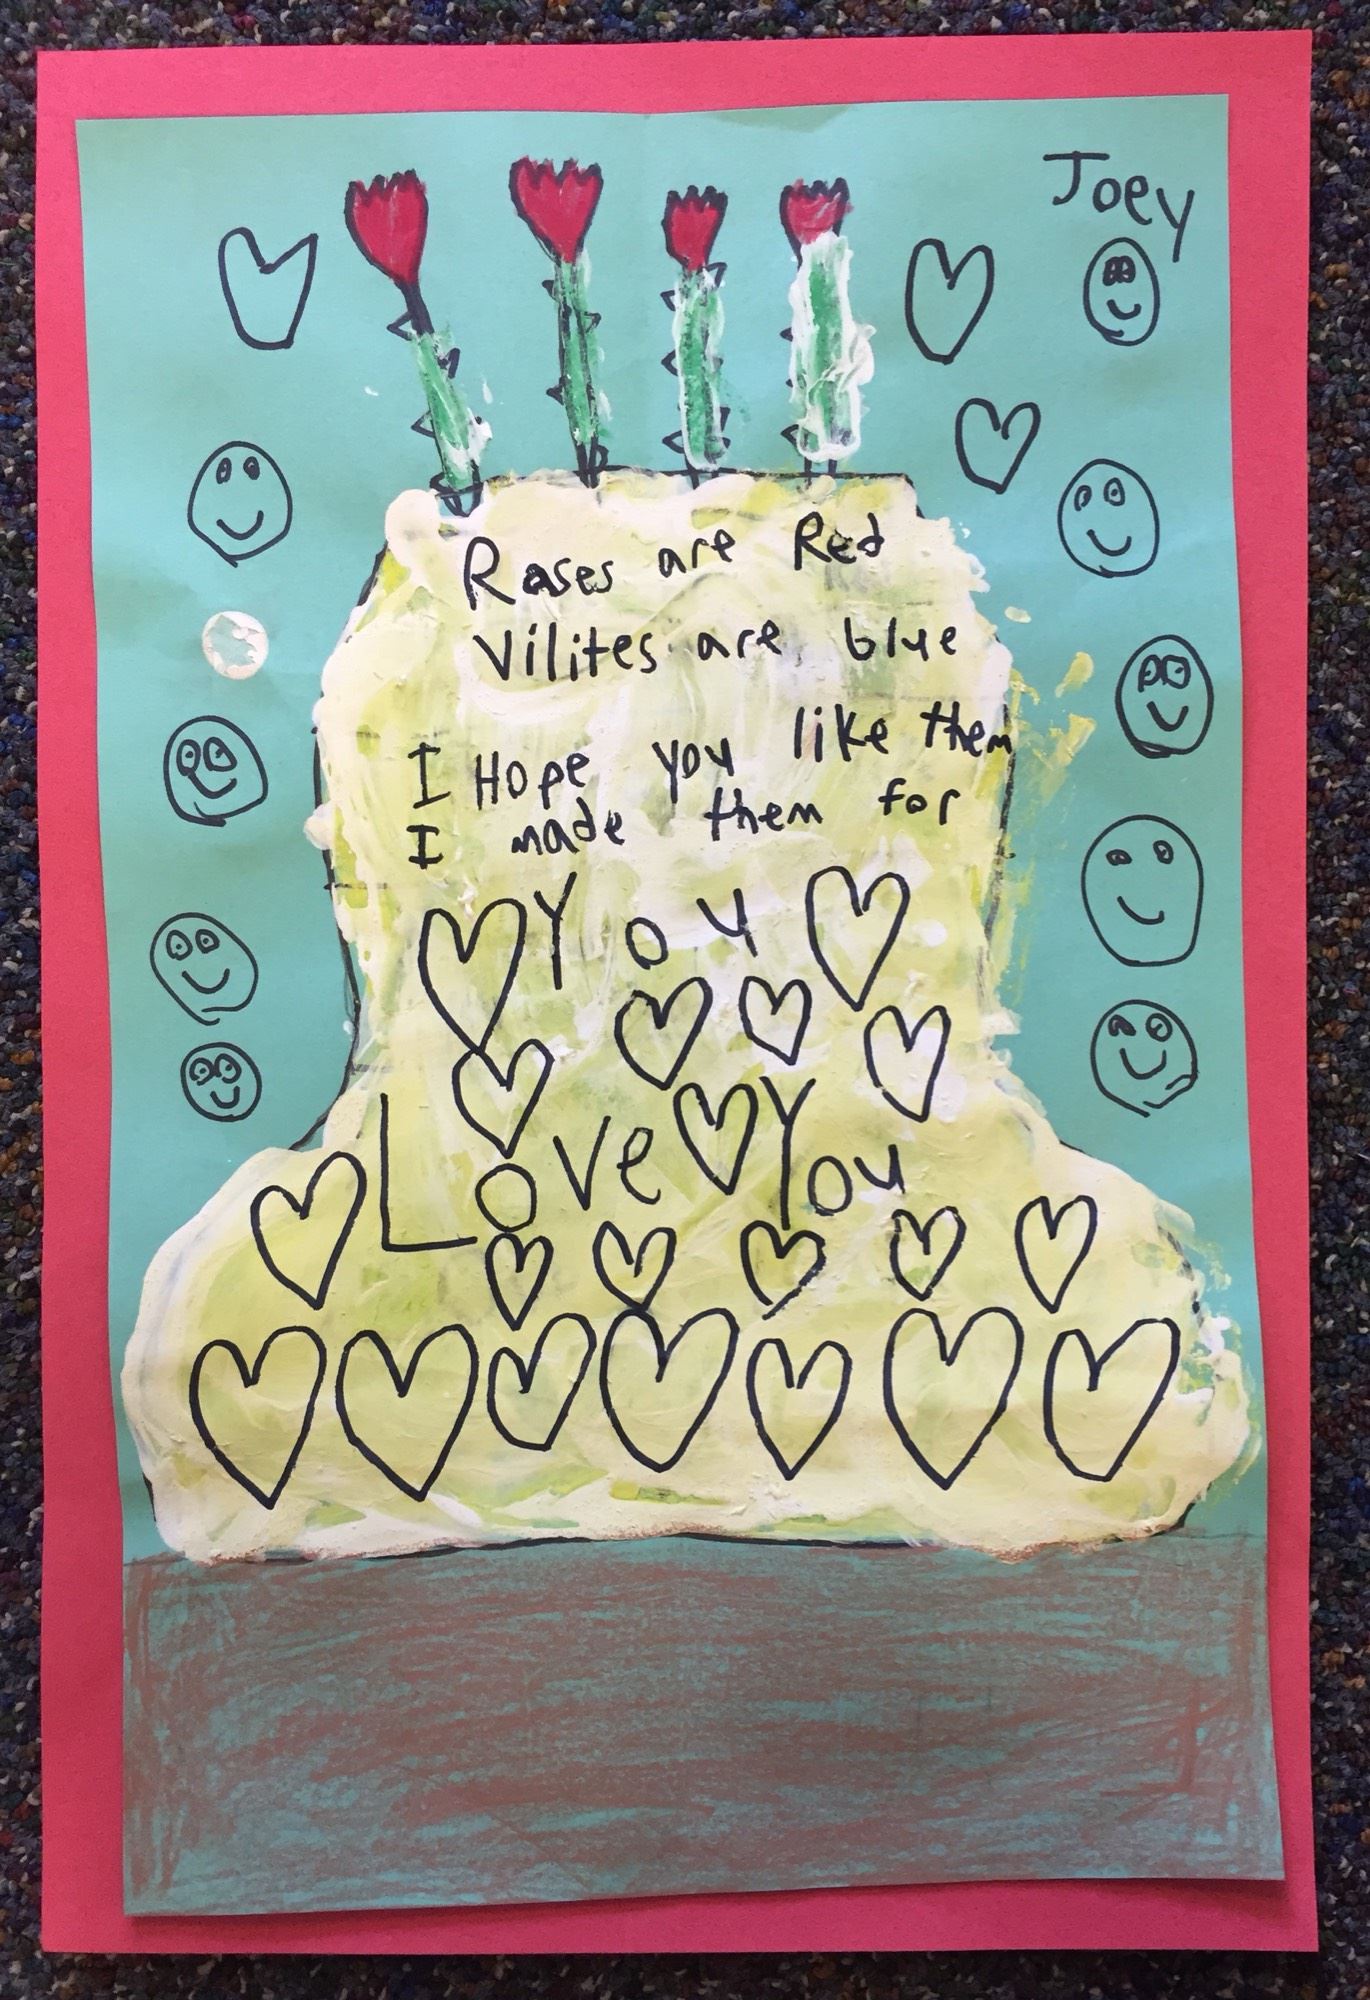 Joey
Roses are Red
Vilites are blue
I Hope you like them
I made them for
You
Love You